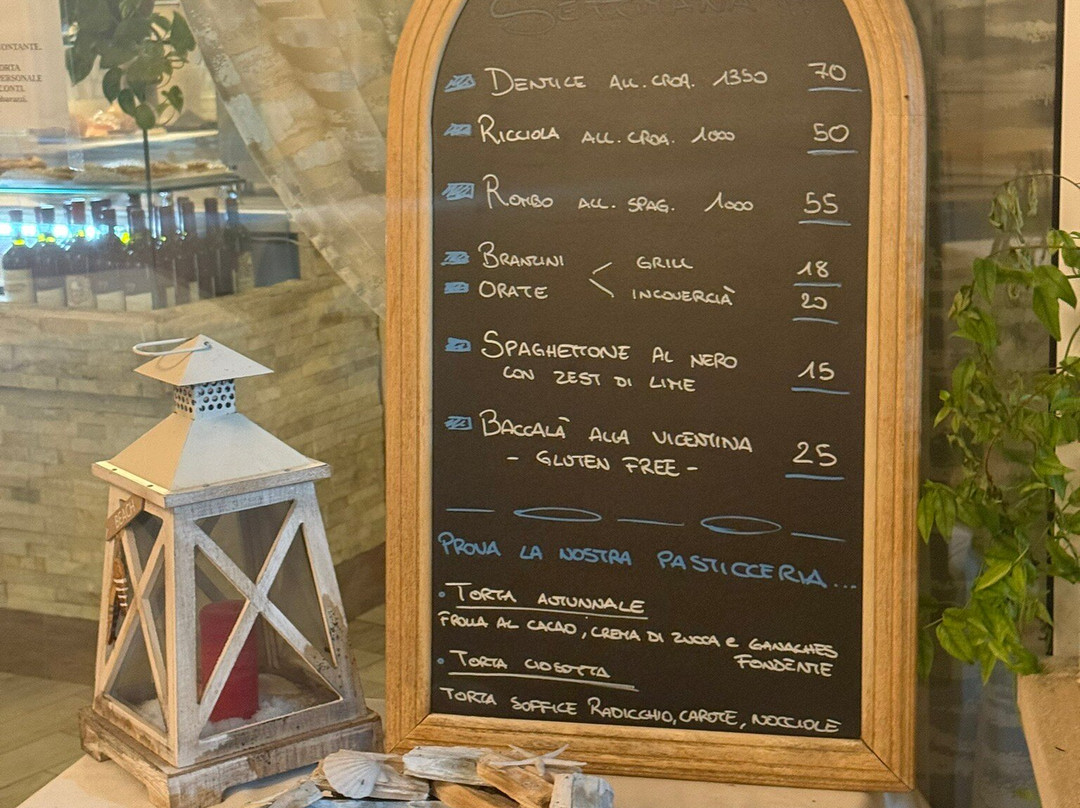 CONTANTE.
ORTA
PERSONALE
CONTI.
SETTIMANA
DENTICE ALL. CROA. 1350 70
RICCIOLA ALL. CROA. 1000 50
ROMBO ALL. SPAG. 1000 55
BRANZINI GRILL 18
ORATE INCOVERCIÀ 20
SPAGHETTONE AL NERO
CON ZEST DI LIME 15
BACCALÀ ALLA VICENTINA
- GLUTEN FREE - 25
PROVA LA NOSTRA PASTICCERIA...
TORTA AUTUNNALE
FROLLA AL CACAO, CREMA DI ZUCCA e GANACHES
FONDENTE
TORTA CIOSOTTA
TORTA SOFFICE RADICCHIO, CAROTE, NOCCIOLE
BEACH